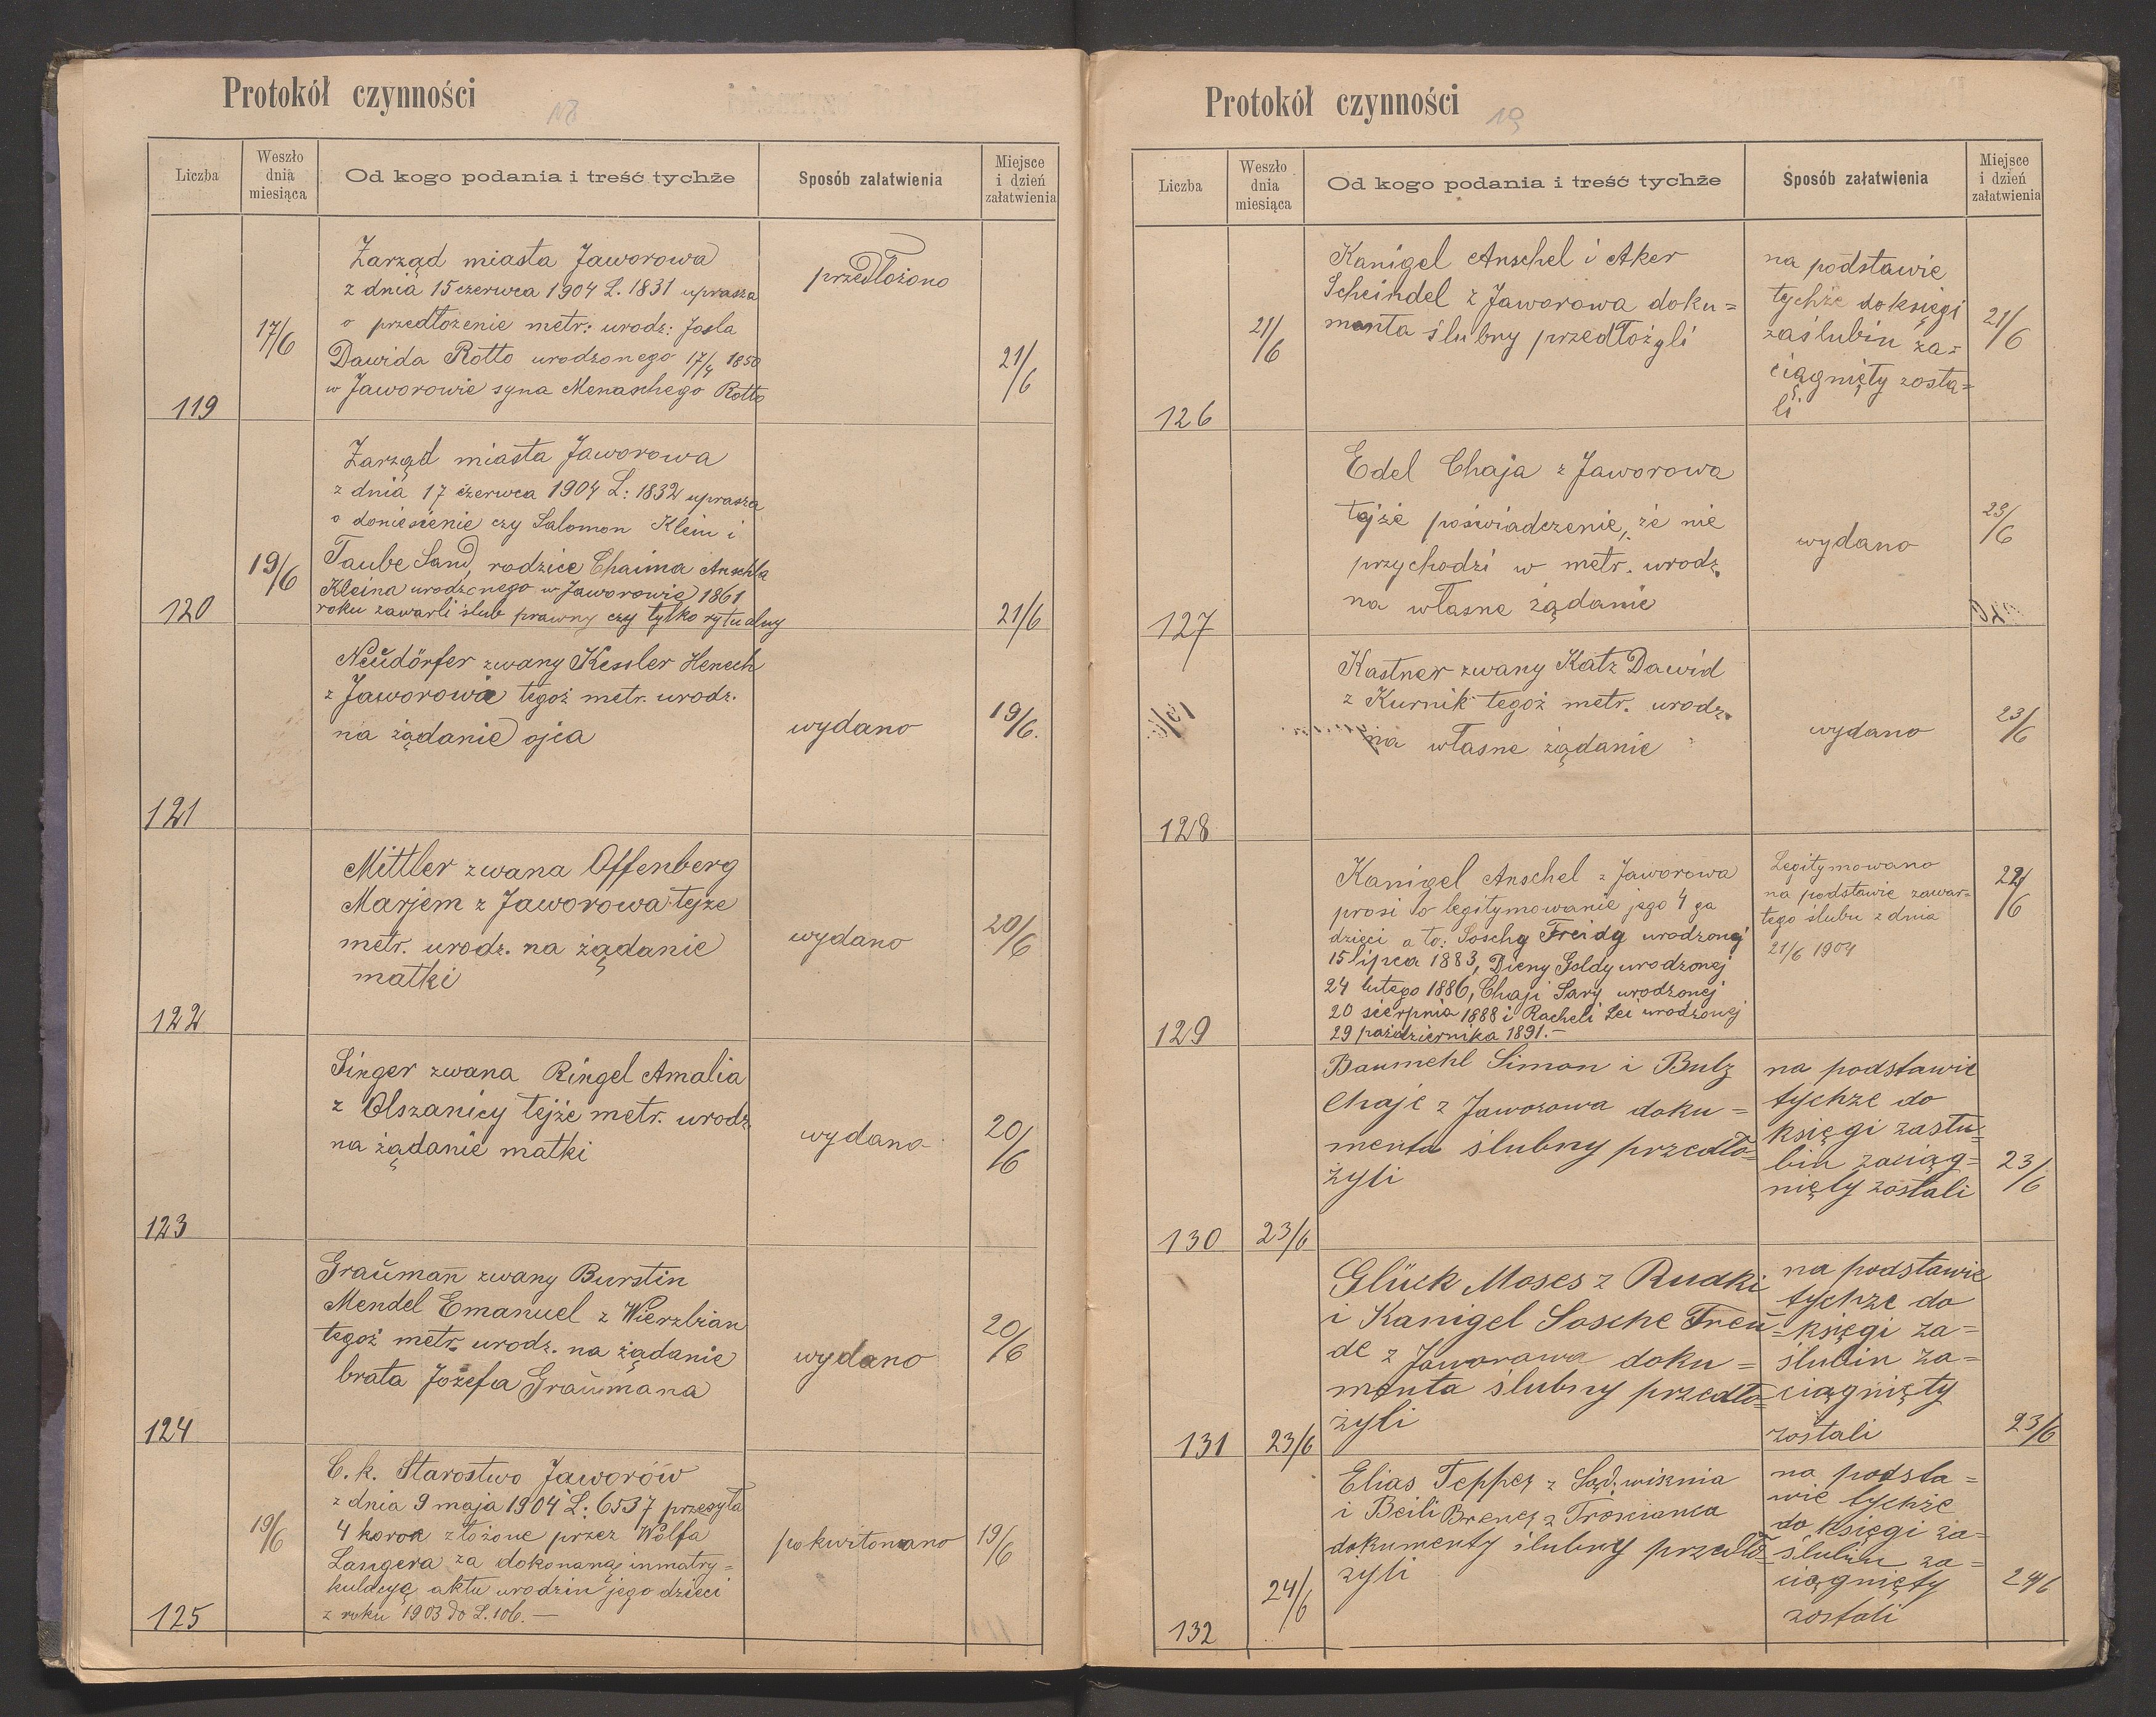 Protokół czynności
18
Liczba
Weszło dnia miesiąca
Od kogo podania i treść tychże
Sposób załatwienia
Miejsce i dzień załatwienia
119
17/6
Zarząd miasta Jaworowa
z dnia 15 czerwca 1904 L. 1831 uprasza
o przedłożenie metr: urodz: Josla
Dawida Rotto urodzonego 17/4 1850
w Jaworowie syna Menaschego Rotto
przedłożono
21/6
120
19/6
Zarząd miasta Jaworowa
z dnia 17 czerwca 1904 L: 1832 uprasza
o doniesienie czy Salomon Klein i
Taube Sand, rodzice Chaima Anschla
Kleina urodzonego w Jaworowie 1861
roku zawarli ślub prawny czy tylko rytualny
21/6
121
Neŭdörfer zwany Kessler Henech
z Jaworowa tegoż metr. urodz.
na żądanie ojca
wydano
19/6.
122
Mittler zwana Offenberg
Marjem z Jaworowa tejże
metr. urodz. na żądanie
matki
wydano
20/6
123
Singer zwana Ringel Amalia
z Olszanicy tejże metr. urodz.
na żądanie matki
wydano
20/6
124
Graŭman zwany Burstin
Mendel Emanuel z Wierzbian
tegoż metr. urodz. na żądanie
brata Józefa Graŭmana
wydano
20/6
125
19/6
C. k. Starostwo Jaworów
z dnia 9 maja 1904 L: 6537 przesyła
4 koron złożone przez Wolfa
Langera za dokonaną inmatry=
kulacyę aktu urodzin jego dzieci
z roku 1903 do L. 106. —
pokwitowano
19/6
Protokół czynności
19
Liczba
Weszło dnia miesiąca
Od kogo podania i treść tychże
Sposób załatwienia
Miejsce i dzień załatwienia
126
21/6
Kanigel Anschel i Aker
Scheindel z Jaworowa doku=
menta ślubny przedłożyli
na podstawie
tychże do księgi
zaślubin za=
ciągnięty zosta=
li
21/6
127
Edel Chaja z Jaworowa
tejże poświadczenie, że nie
przychodzi w metr. urodz.
na własne żądanie
wydano
23/6
128
Kastner zwany Katz Dawid
z Kurnik tegoż metr. urodz.
na własne żądanie
wydano
23/6
129
Kanigel Anschel z Jaworowa
prosi o legitymowanie jego 4 ga
dzieci a to: Soschy Freidy urodzonej
15 lipca 1883, Dieny Goldy urodzonej
24 lutego 1886, Chaji Sary urodzonej
20 sierpnia 1888 i Racheli Lei urodzonej
29 października 1891. —
Legitymowano
na podstawie zawar=
tego ślubu z dnia
21/6 1904
22/6
130
23/6
Baumehl Simon i Bulz
Chaje z Jaworowa doku=
menta ślubny przedło=
żyli
na podstawie
tychże do
księgi zaślu=
bin zaciąg=
nięty zostali
23/6
131
23/6
Glück Moses z Rudki
i Kanigel Sosche Freŭ=
de z Jaworowa doku=
menta ślubny przedło=
żyli
na podstawie
tychże do
księgi za=
ślubin za=
ciągnięty
zostali
23/6
132
24/6
Elias Tepper z Sąd. wisznia
i Beili Brener z Trościanca
dokumenty ślubny przedło=
żyli
na podsta=
wie tychże
do księgi za=
ślubin za=
ciągnięty
zostali
24/6